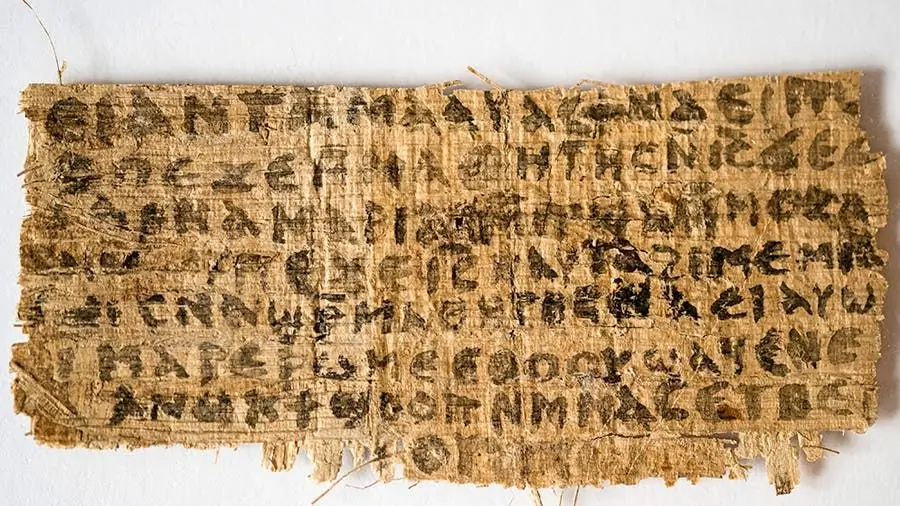 ⲉⲓ ⲁⲛ ⲧⲁⲙⲁⲁⲩ ⲁⲥϯ ⲛⲁⲉⲓ
ⲡⲉϫⲉ ⲙⲙⲁⲑⲏⲧⲏⲥ ⲛⲓⲥ ϫⲉ ⲥ
ⲁⲣⲛⲁ ⲙⲁⲣⲓϩⲁⲙ ⲙⲡϣⲁ ⲙⲙⲟⲥ ⲁ
ⲡⲉϫⲉ ⲓⲥ ⲛⲁⲩ ⲧⲁϩⲓⲙⲉ ⲙⲛ
ⲥⲛⲁϣⲣⲙⲁⲑⲏⲧⲏⲥ ⲛⲁⲉⲓ ⲁⲩⲱ
ⲓ ⲙⲁⲣⲉⲣⲱⲙⲉ ⲉⲑⲟⲟⲩ ϣⲁϥⲉⲛⲉ
ⲁⲛⲟⲕ ϯϣⲟⲟⲡ ⲛⲙⲙⲁⲥ ⲉⲧⲃⲉ